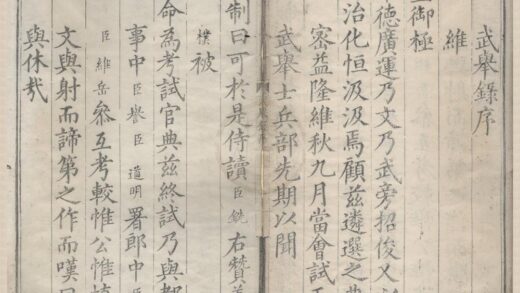 武舉錄序
維
上御極
德廣運乃文乃武旁招俊乂
治化恒汲汲焉顧茲遴選之典
密益隆維秋九月當會試
武舉士兵部先期以聞
制曰可於是侍讀臣銑右贊善
樸被
命為考試官典茲終試乃與都
事中臣 臣道明署郎中
臣維岳叅互考較惟公惟慎
文與射而諦第之作而嘆曰
與休哉